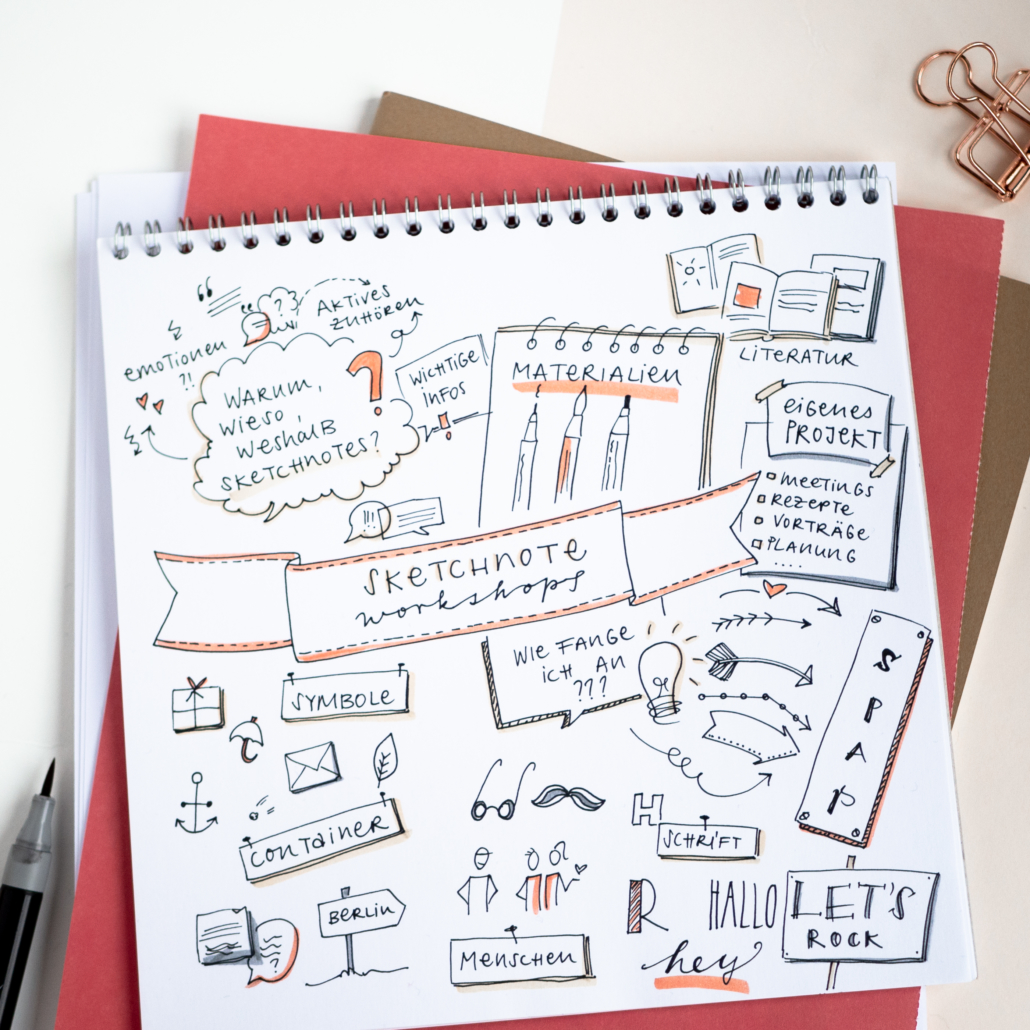 AKTIVES
ZUHÖREN
emotionen
?!
WARUM,
WIESO,
WESHALB
SKETCHNOTES?
?
WICHTIGE
INFOS
!
MATERIALIEN
LITERATUR
eigenes
PROJEKT
MEETINGS
REZEPTE
VORTRÄGE
PLANUNG
....
!!!
SKETCHNOTE
workshops
WIE FANGE
ICH AN
???
SPAP
SYMBOLE
CONTAINER
BERLIN
?
MENSCHEN
H
SCHRIFT
R
HALLO
hey
LET'S
ROCK